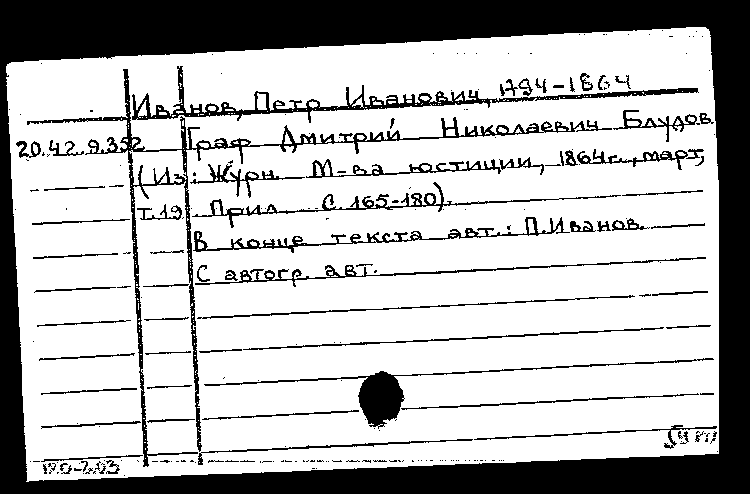 Иванов, Петр Иванович, 1794-1864
20.42.9.352 Граф Дмитрий Николаевич Блудов
(Из: Журн. М-ва юстиции, 1864г., март,
т.19. Прил. С. 165-180).
В конце текста авт.: П.Иванов.
С автогр. авт.